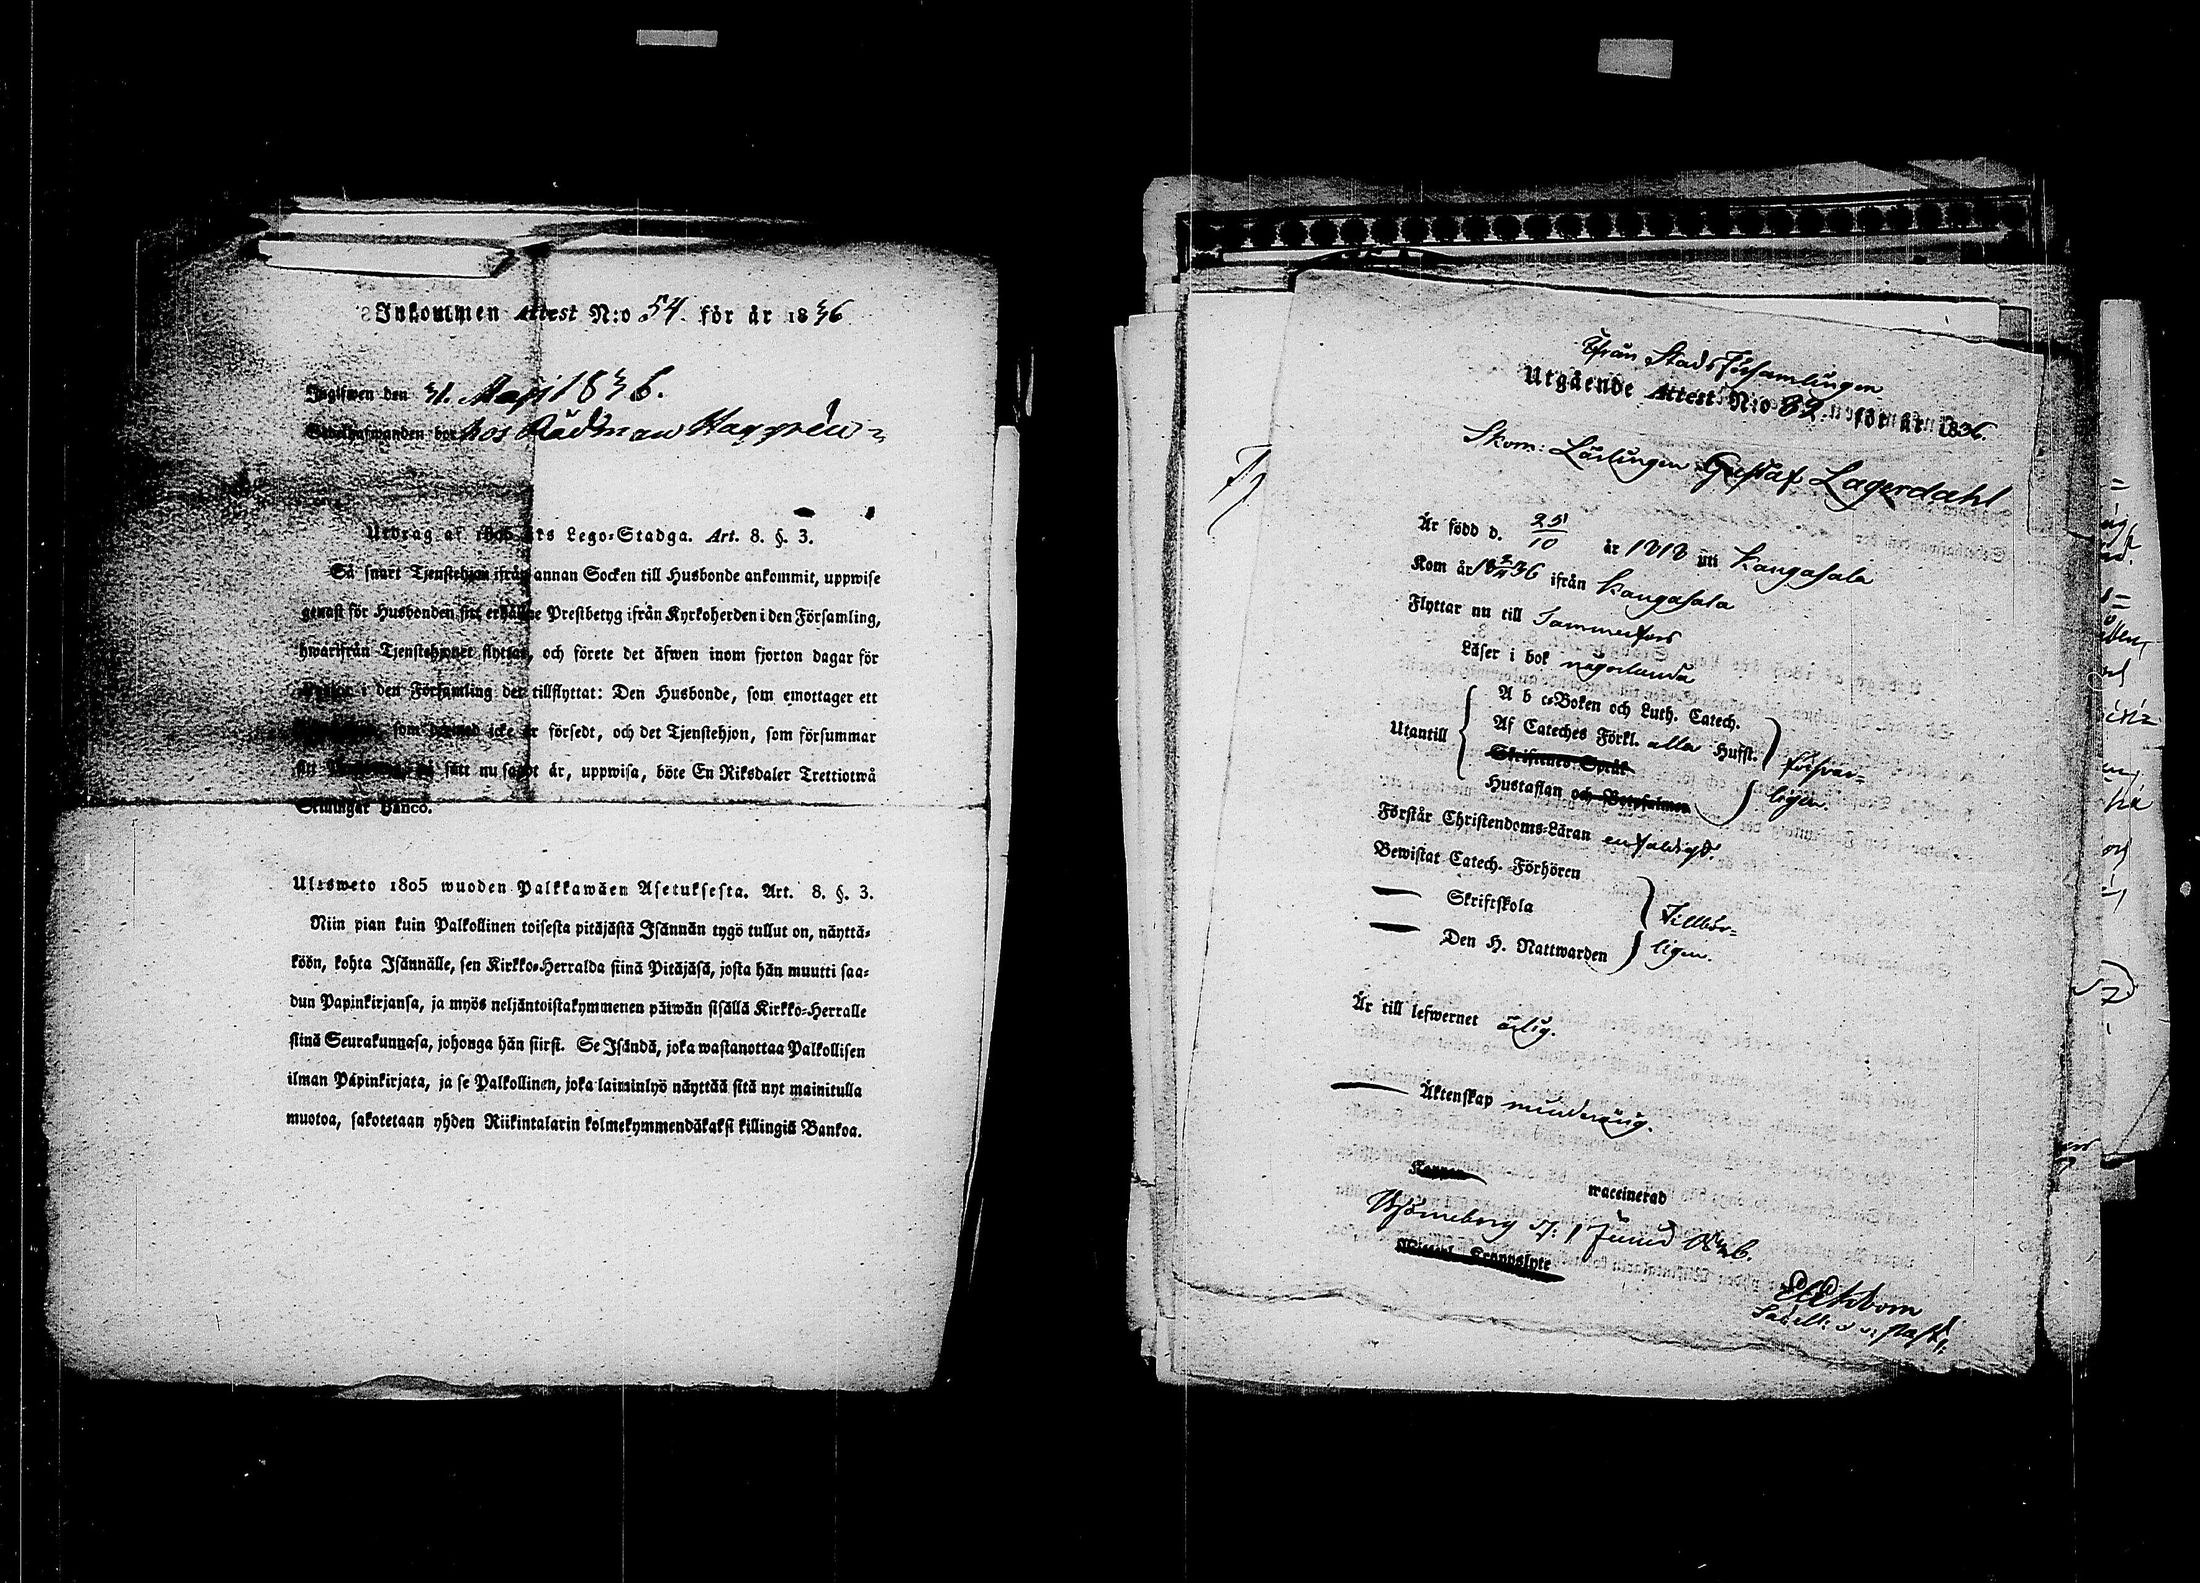 Inkommen Attest N:o 54. för år 1836
Ingifwen den 31. Maji 1836.
hos Rådman
Utdrag af 1805 års Lego-Stadga. Art. 8. §. 3.
Så snart Tjenstehjon ifrån annan Socken till Husbonde ankommit, uppwise
genast för Husbonden sitt erhållne Prestbetyg ifrån Kyrkoherden i den Församling,
hwarifrån Tjenstehjonet flyttat, och förete det äfwen inom fjorton dagar för
i den Församling det tillflyttat: Den Husbonde, som emottager ett
som dermed icke är försedt, och det Tjenstehjon, som försummar
att på sätt nu sagdt är, uppwisa, böte En Riksdaler Trettiotwå
Skillingar Banco.
Ulosweto 1805 wuoden Palkkawäen Asetuksesta. Art. 8. §. 3.
Niin pian kuin Palkollinen toisesta pitäjästä Isännän tygö tullut on, näyttä-
köön, kohta Isännälle, sen Kirkko-Herralda siinä Pitäjäsä, josta hän muutti saa-
dun Papinkirjansa, ja myös neljäntoistakymmenen päiwän sisällä Kirkko-Herralle
siinä Seurakunnasa, johonga hän siirsi. Se Isändä, joka wastanottaa Palkollisen
ilman Papinkirjata, ja se Palkollinen, joka laiminlyö näyttää sitä nyt mainitulla
muotoa, sakotetaan yhden Riikintalarin kolmekymmendäkaksi killingiä Bankoa.
Ifrån Stads Församlingen
Utgående Attest N:o 82. för år 1836.
Skom: Lärlingen Gustaf Lagerdahl
Är född d. 25/10 år 1818 uti Kangasala
Kom år 1836 ifrån Kangasala
Flyttar nu till Tammerfors
Läser i bok någorlunda
A b c-Boken och Luth. Catech.
Utantill Af Cateches Förkl. alla Hufst. försvar-
Skriftenes Språk
Hustaflan och Botpsalmer ligen.
Förstår Christendoms-Läran enfaldigt.
Bewistat Catech. Förhören
— Skriftskola Tillbör-
— Den H. Nattwarden ligen.
Är till lefwernet ärlig.
— Äktenskap minderårig.
Koppor waccinerad
Björneborg d. 1 Junii 1836.